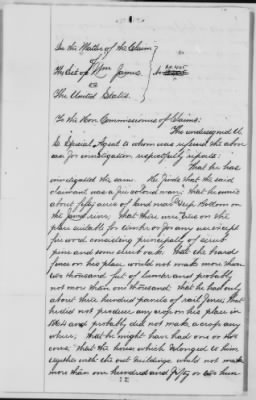 In the Matter of the Claim
The Est of Wm James
vs
The United States.
To the Hon Commissioners of Claims:
The undersigned U
S Special Agent to whom was referred the above
case for investigation respectfully reports:
That he has
investigated the same. He finds that the said
claimant was a free colored man; that he owned
about fifty acres of land near Deep Bottom on
the James river; that there was on the
place suitable for timber or for any use except
for wood consisting principally of scrub
pine and some scrub oak; that the board
fence on his place would not make more than
two thousand feet of lumber and probably
not more than one thousand; that he had only
about three hundred panels of rail fence; that
he did not produce any crop on his place in
1864 and probably did not make a crop any
where; that he might have had one or two
cows; that the house which belonged to him
together with the out buildings would not make
more than one hundred and fifty or two hun